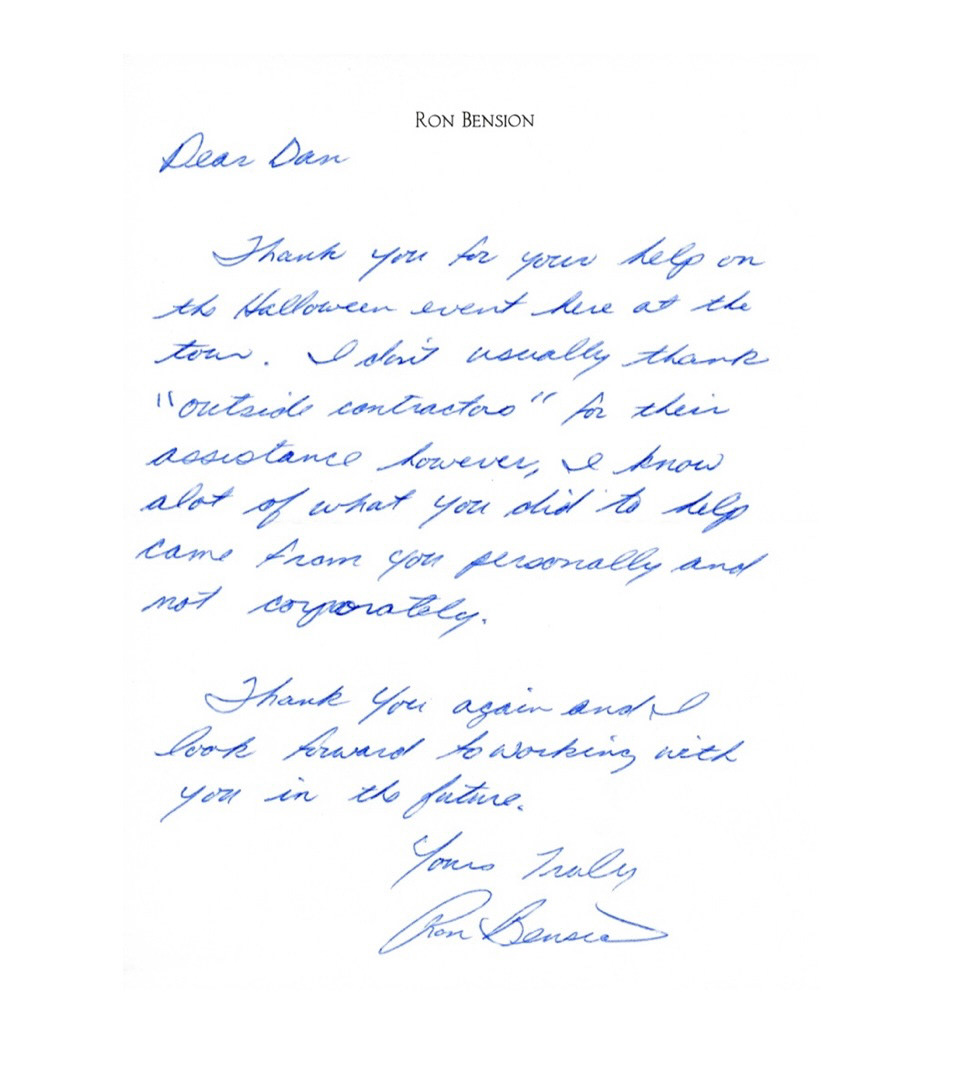 RON BENSION
Dear Dan
Thank you for your help on
the Halloween event here at the
tour. I don't usually thank
"outside contractors" for their
assistance however, I know
alot of what you did to help
came from you personally and
not corporately.
Thank you again and I
look forward to working with
you in the future.
Yours Truly
Ron Bension